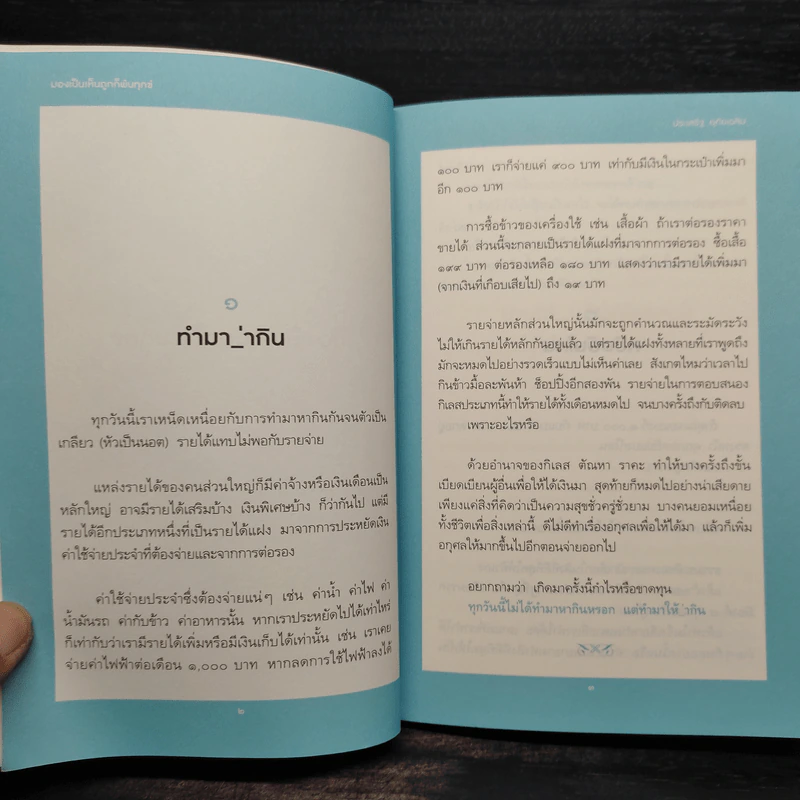 มองเป็นเห็นถูกก็พ้นทุกข์
๑
ทำมา_่ากิน
ทุกวันนี้เราเหน็ดเหนื่อยกับการทำมาหากินกันจนตัวเป็น
เกลียว (หัวเป็นนอต) รายได้แทบไม่พอกับรายจ่าย
แหล่งรายได้ของคนส่วนใหญ่ก็มีค่าจ้างหรือเงินเดือนเป็น
หลักใหญ่ อาจมีรายได้เสริมบ้าง เงินพิเศษบ้าง ก็ว่ากันไป แต่มี
รายได้อีกประเภทหนึ่งที่เป็นรายได้แฝง มาจากการประหยัดเงิน
ค่าใช้จ่ายประจำที่ต้องจ่ายและจากการต่อรอง
ค่าใช้จ่ายประจำซึ่งต้องจ่ายแน่ๆ เช่น ค่าน้ำ ค่าไฟ ค่า
น้ำมันรถ ค่ากับข้าว ค่าอาหารนั้น หากเราประหยัดไปได้เท่าไหร่
ก็เท่ากับว่าเรามีรายได้เพิ่มหรือมีเงินเก็บได้เท่านั้น เช่น เราเคย
จ่ายค่าไฟฟ้าต่อเดือน ๑,๐๐๐ บาท หากลดการใช้ไฟฟ้าลงได้
๒
ประเสริฐ อุทัยเฉลิม
๑๐๐ บาท เราก็จ่ายแค่ ๙๐๐ บาท เท่ากับมีเงินในกระเป๋าเพิ่มมา
อีก ๑๐๐ บาท
การซื้อข้าวของเครื่องใช้ เช่น เสื้อผ้า ถ้าเราต่อรองราคา
ขายได้ ส่วนนี้จะกลายเป็นรายได้แฝงที่มาจากการต่อรอง ซื้อเสื้อ
๑๙๙ บาท ต่อรองเหลือ ๑๘๐ บาท แสดงว่าเรามีรายได้เพิ่มมา
(จากเงินที่เกือบเสียไป) ถึง ๑๙ บาท
รายจ่ายหลักส่วนใหญ่นั้นมักจะถูกคำนวณและระมัดระวัง
ไม่ให้เกินรายได้หลักกันอยู่แล้ว แต่รายได้แฝงทั้งหลายที่เราพูดถึง
มักจะหมดไปอย่างรวดเร็วแบบไม่เห็นค่าเลย สังเกตไหมว่าเวลาไป
กินข้าวมื้อละพันห้า ช็อปปิ้งอีกสองพัน รายจ่ายในการตอบสนอง
กิเลสประเภทนี้ทำให้รายได้ทั้งเดือนหมดไป จนบางครั้งถึงกับติดลบ
เพราะอะไรหรือ
ด้วยอำนาจของกิเลส ตัณหา ราคะ ทำให้บางครั้งถึงขั้น
เบียดเบียนผู้อื่นเพื่อให้ได้เงินมา สุดท้ายก็หมดไปอย่างน่าเสียดาย
เพียงแค่สิ่งที่คิดว่าเป็นความสุขชั่วครู่ชั่วยาม บางคนยอมเหนื่อย
ทั้งชีวิตเพื่อสิ่งเหล่านี้ ดีไม่ดีทำเรื่องอกุศลเพื่อให้ได้มา แล้วก็เพิ่ม
อกุศลให้มากขึ้นไปอีกตอนจ่ายออกไป
อยากถามว่า เกิดมาครั้งนี้กำไรหรือขาดทุน
ทุกวันนี้ไม่ได้ทำมาหากินหรอก แต่ทำมาให้_่ากิน
๓